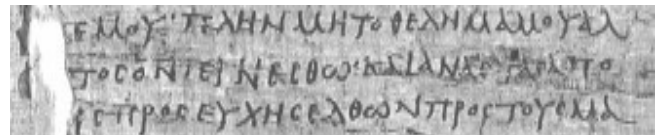 ΕΜΟΥ·ΠΛΗΝΜΗΤΟΘΕΛΗΜΑΜΟΥΑΛ
ΤΟϹΟΝΓΕΙΝΕϹΘΩ·ΚΑΙΑΝΑϹΤΑϹΑΠΟ
ΗϹΠΡΟϹΕΥΧΗϹΕΛΘΩΝΠΡΟϹΤΟΥϹΜΑ